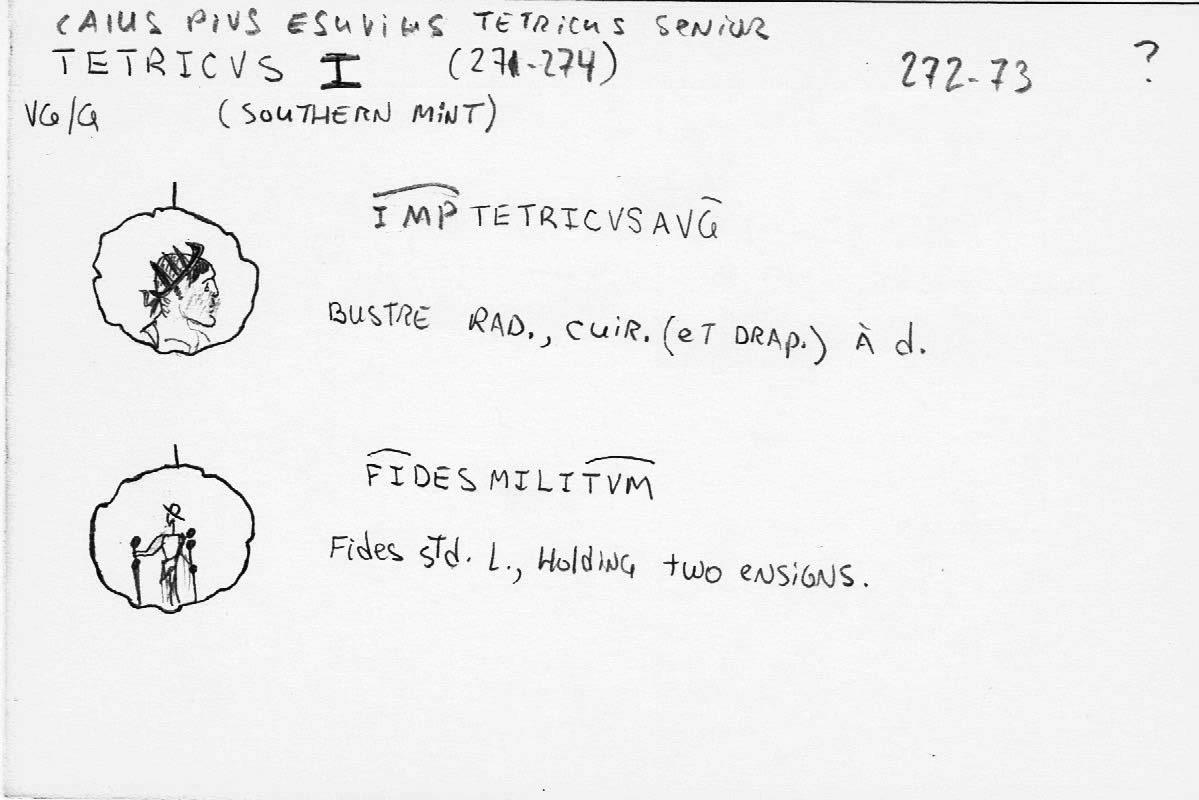 CAIUS PIVS ESUVIUS TETRICUS SENIOR
TETRICVS I (271-274) 272-73 ?
VG/G (SOUTHERN MINT)
IMPTETRICVSAVG
BUSTRE RAD., CUIR. (ET DRAP.) À d.
FIDESMILITVM
Fides std. L., HoldiNG two eNSiGNS.